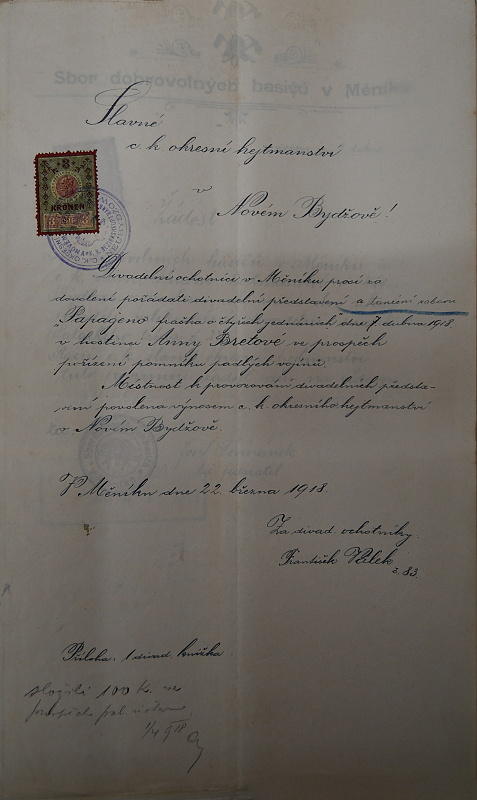 Sbor dobrovolných hasičů v Měníku
Slavné
c. k. okresní hejtmanství
v
Novém Bydžově!
3
KRONEN
Divadelní ochotníci v Měníku prosí za
dovolení pořádati divadelní představení a taneční zábavu
"Papageno" fraška o čtyřech jednáních" dne 7. dubna 1918.
v hostinci Anny Bretové ve prospěch
pořízení pomníku padlých vojínů.
Místnost k provozování divadelních předsta-
vení povolena výnosem c. k. okresního hejtmanství
v Novém Bydžově.
V Měníku dne 22. března 1918.
Za divad. ochotníky.
František
č. 83.
Příloha: 1 divad. knížka.
složili 100 K. ve
prospěch
1/4 918